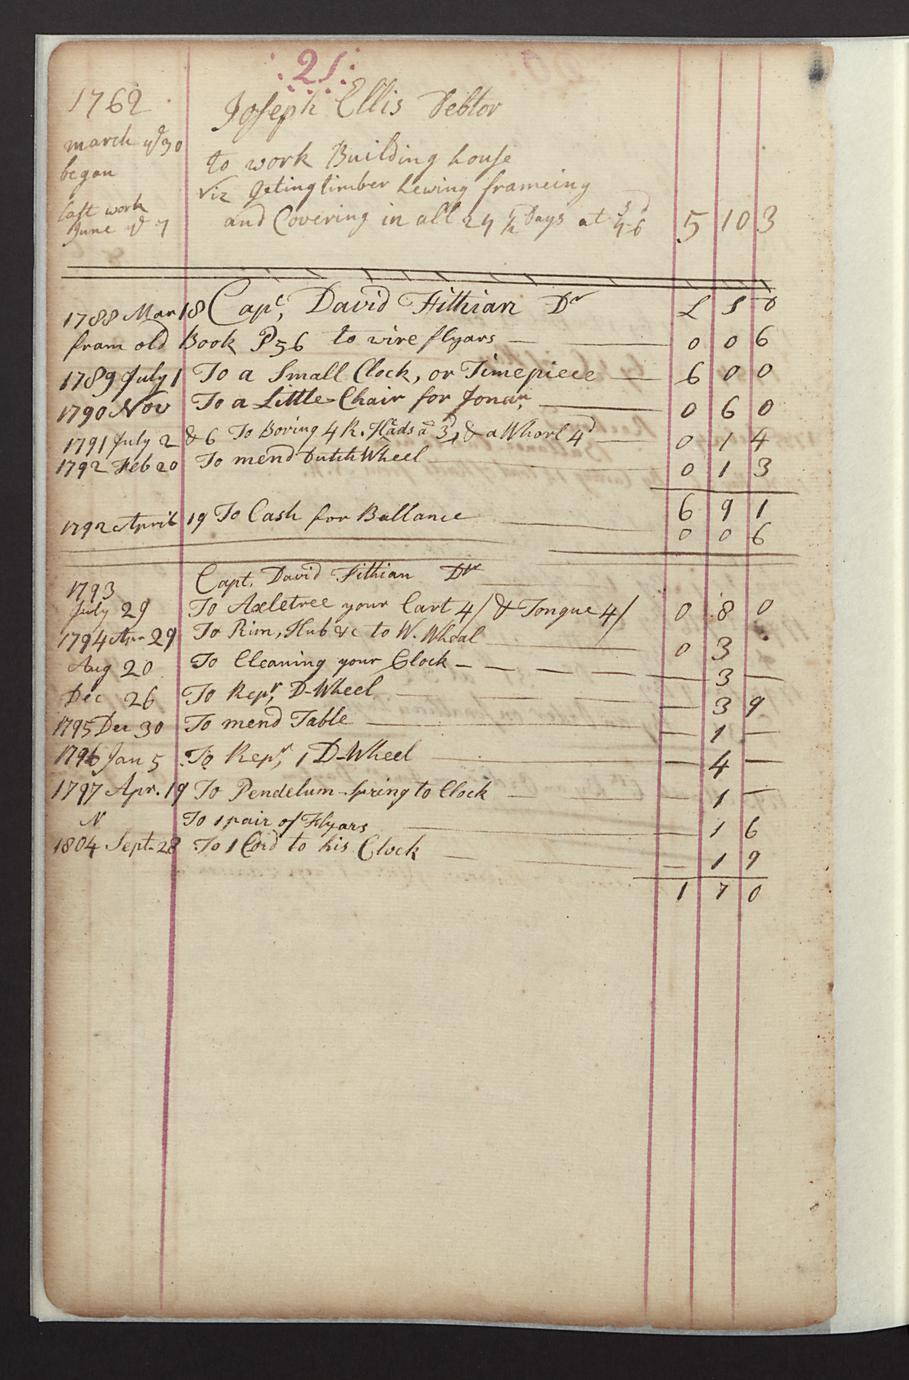 21
1762 Joseph Ellis Debtor
march ye 30 to work Building house
began viz Geting timber hewing frameing
last work and Covering in all 24 1/2 Days at 4s 6d 5 10 3
June ye 7
1788 Mar 18 Capt, David Fithian Dr L S D
from old Book P56 to wire flyars 0 0 6
1789 July 1 To a Small Clock, or Timepiece 6 0 0
1790 Nov To a Little-Chair for Jonan 0 6 0
1791 July 2 & 6 To Boring 4 R. Heads a 3d, & a Whorl 4d 0 1 4
1792 Feb 20 To mend Dutch Wheel 0 1 3
6 9 1
1792 April 19 To Cash for Ballance 0 0 6
1793 Capt. David Fithian Dtr
July 29 To Axletree your Cart 4/ & Tongue 4/ 0 8 0
1794 Apr 29 To Rim, Hub &c to W. Wheal 0 3
Aug 20 To Cleaning your Clock — 3 —
Dec 26 To Repr, D-Wheel — 3 9
1795 Dec 30 To mend Table — 1 —
1796 Jan 5 To Repr, 1 D-Wheel — 4 —
1797 Apr. 19 To Pendelum-spring to Clock — 1 —
N To 1 pair of Flyars — 1 6
1804 Sept. 28 To 1 Cord to his Clock — 1 9
1 7 0